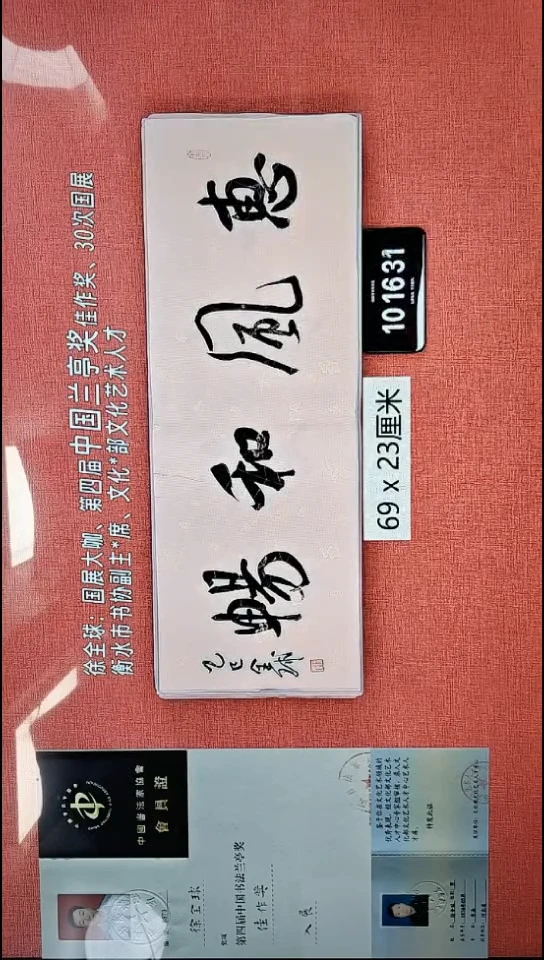 徐全球：国展大咖、第四届中国兰亭奖佳作奖、30次国展
衡水市书协副主*席、文化*部文化艺术人才
惠風和暢
乙巳
全球
10 16 31
69 x 23厘米
中國書法家協會
會員證
徐全球
第四届中国书法兰亭奖
佳作奖
特发此证